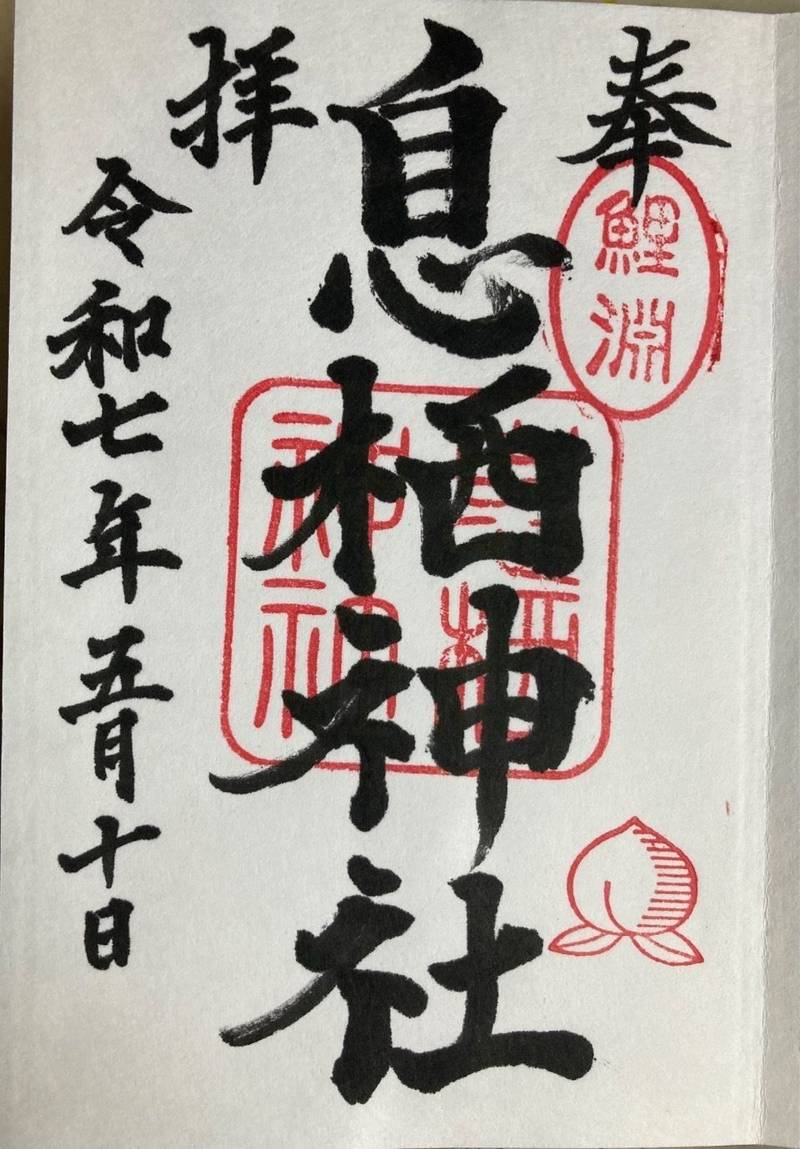 奉
鯉淵
息栖神社
息栖
神社
拝
令和七年五月十日